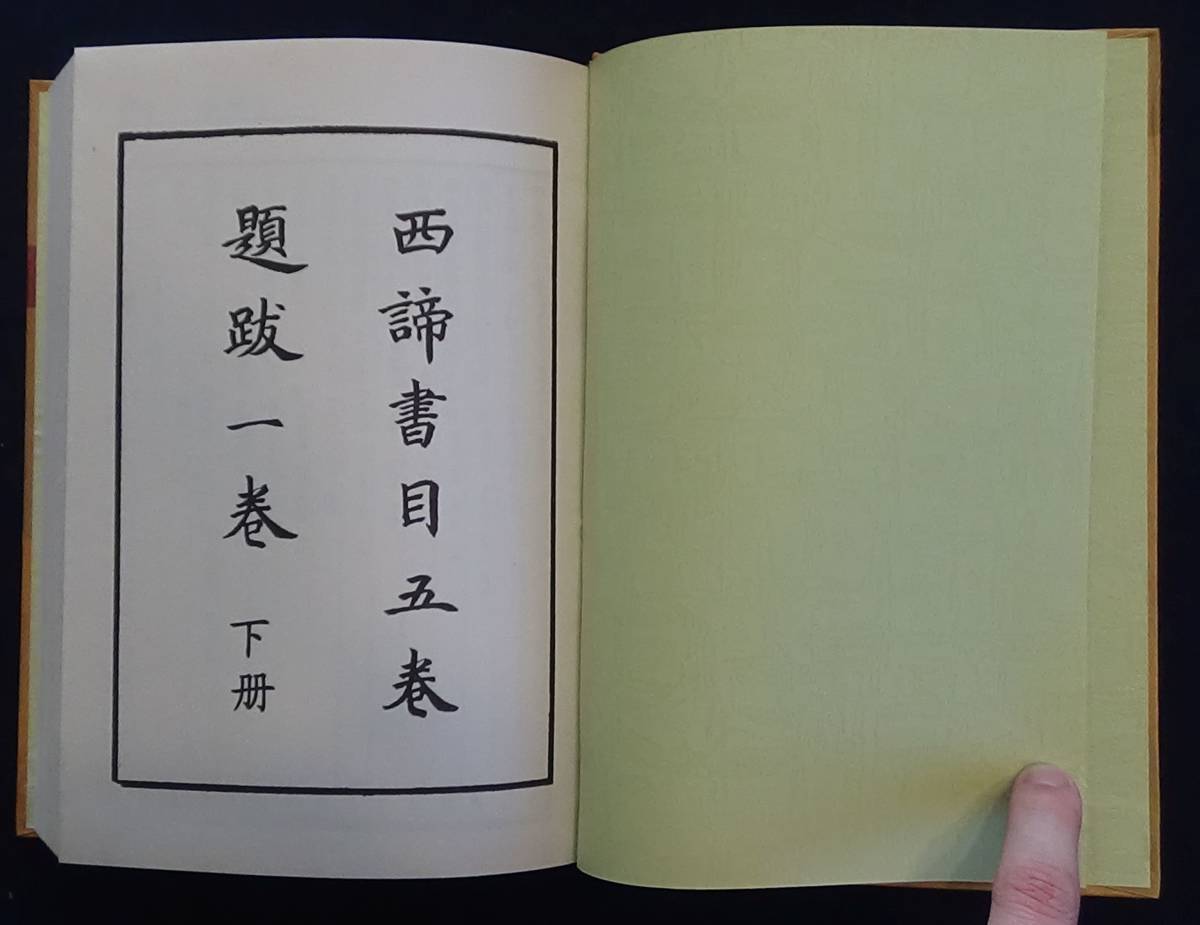 西諦書目五卷
題跋一卷 下册